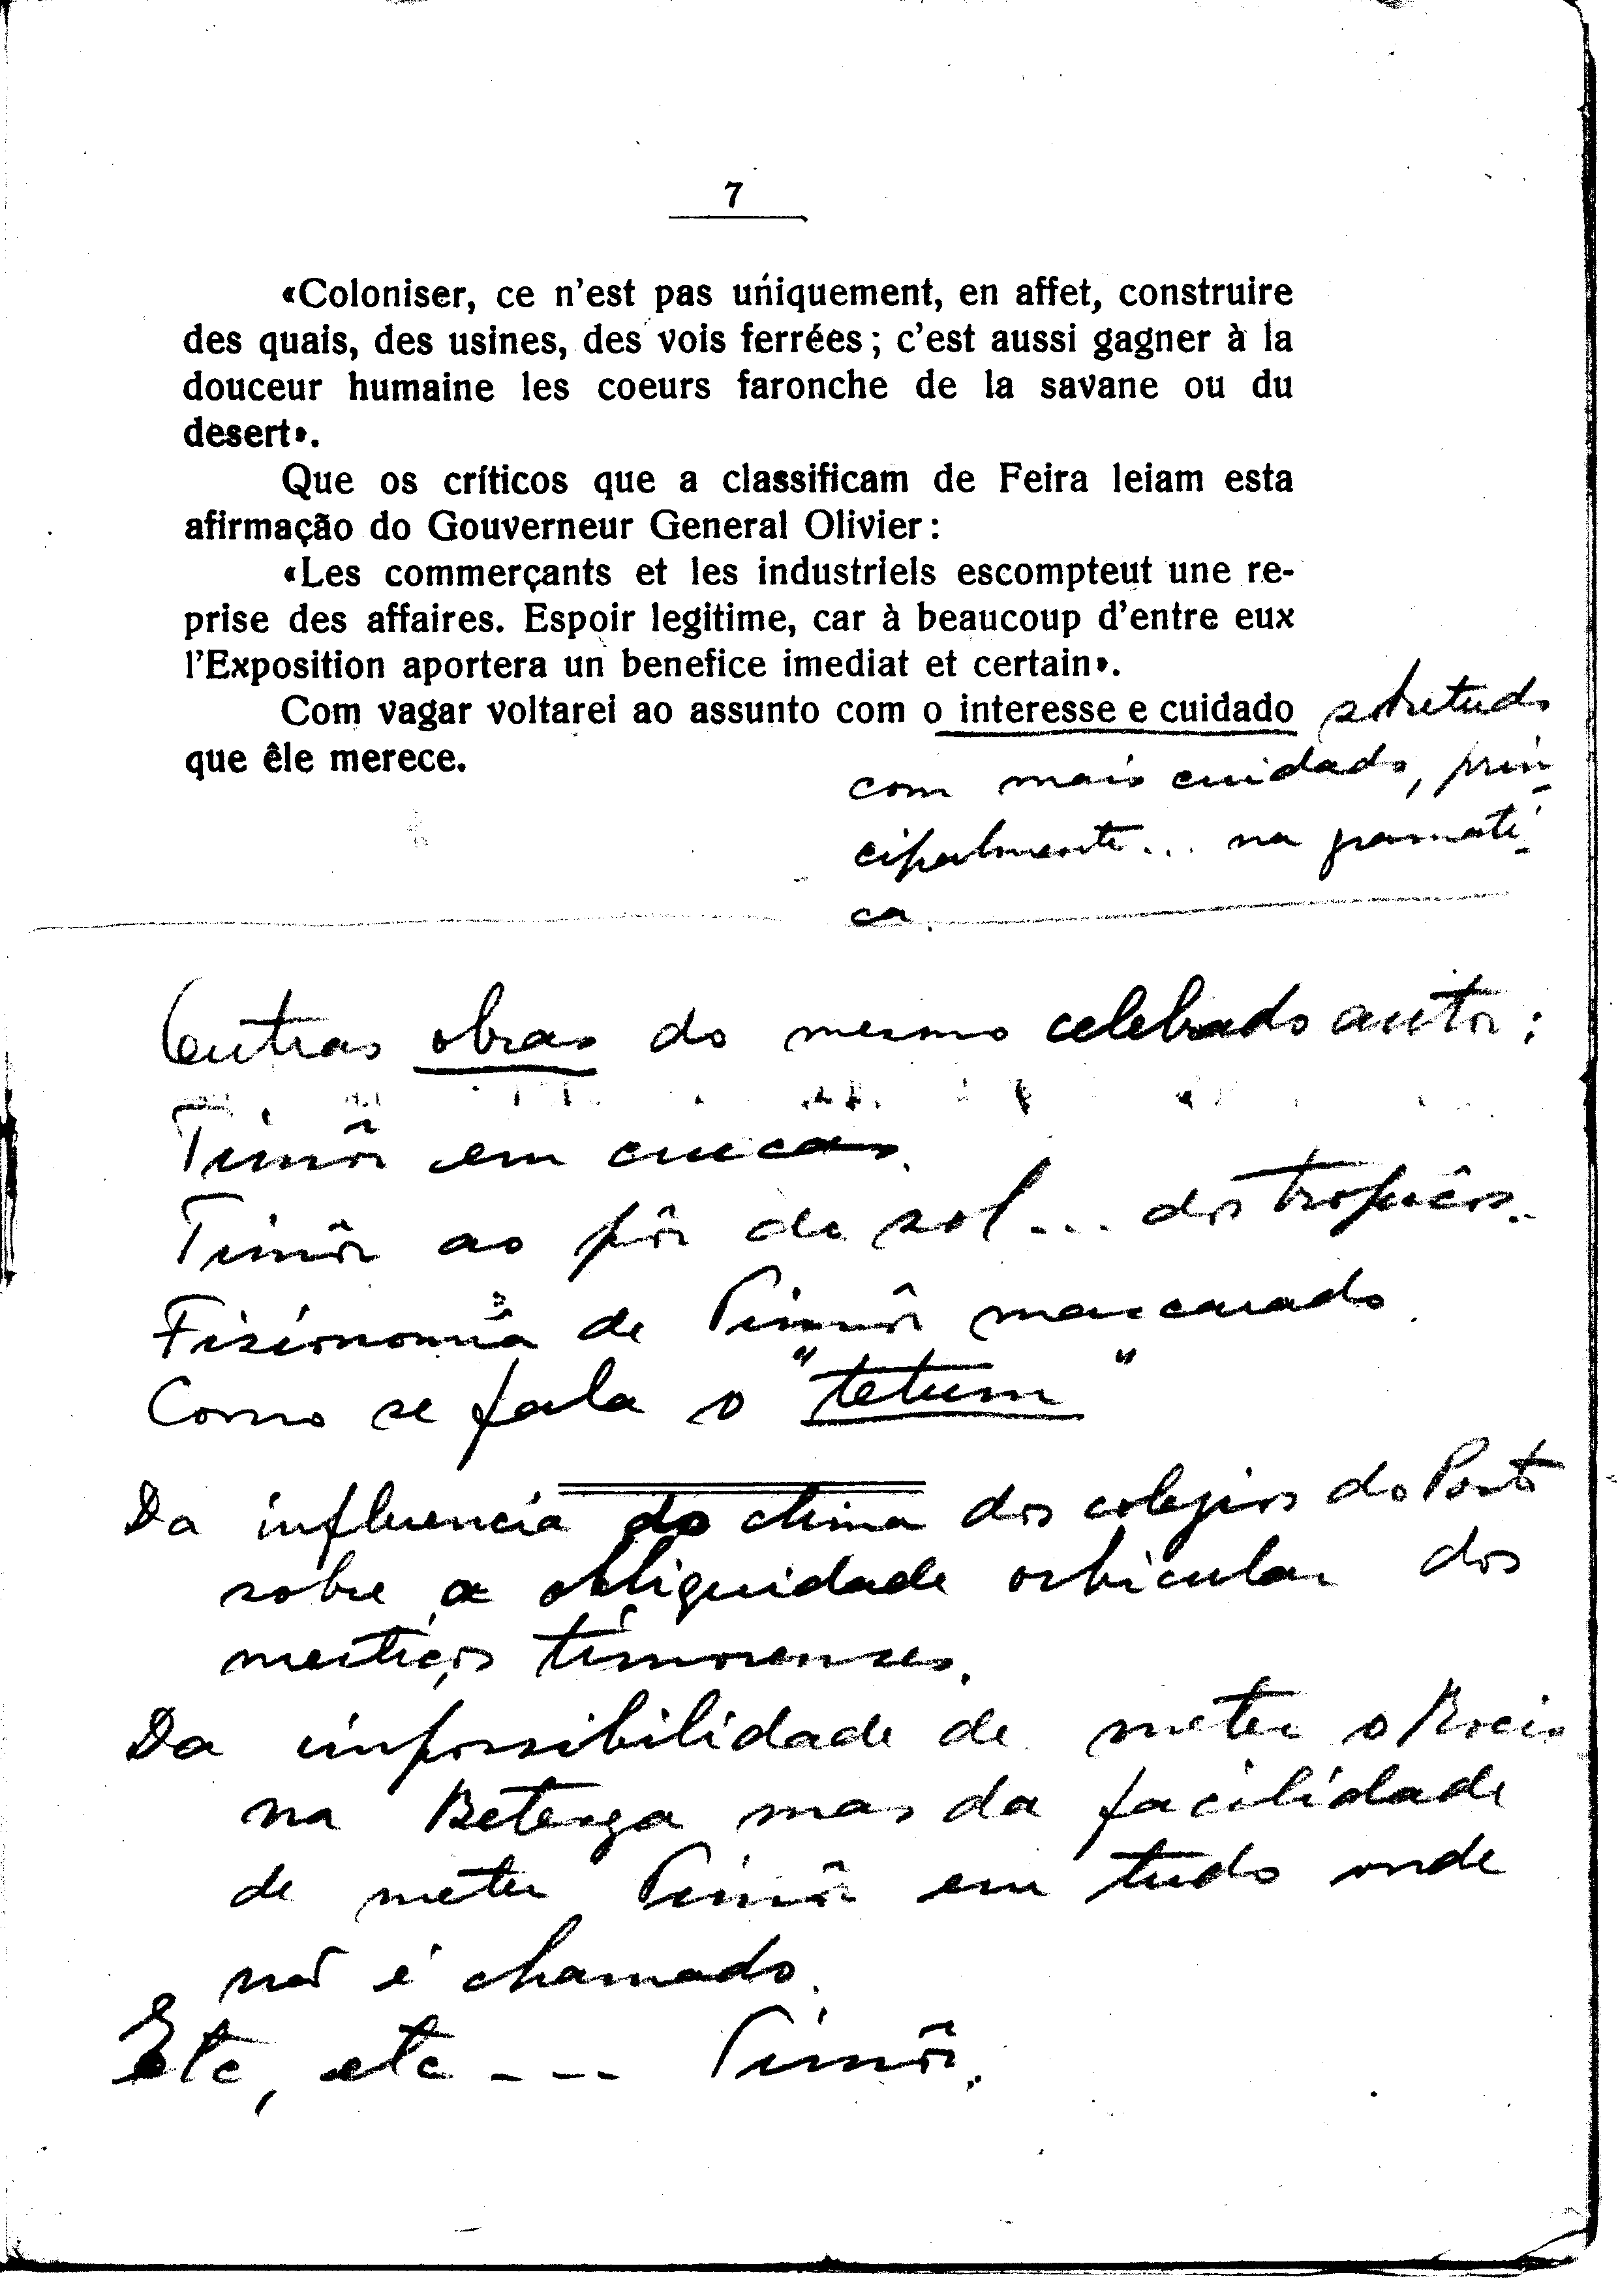 7
«Coloniser, ce n'est pas uniquement, en affet, construire
des quais, des usines, des vois ferrées; c'est aussi gagner à la
douceur humaine les coeurs faronche de la savane ou du
desert».
Que os críticos que a classificam de Feira leiam esta
afirmação do Gouverneur General Olivier:
«Les commerçants et les industriels escompteut une re-
prise des affaires. Espoir legitime, car à beaucoup d'entre eux
l'Exposition aportera un benefice imediat et certain».
Com vagar voltarei ao assunto com o interesse e cuidado sobretudo
que êle merece.
com mais cuidado, prin-
cipalmente... na gramati-
ca.
Outras obras do mesmo celebrado autor:
Timôr em cuecas.
Timôr ao pôr do sol... dos tropicos..
Fisionomia de Timôr mascarado.
Como se fala o "tetum"
Da influencia do clima dos colegios do Porto
sobre a obliquidade orbicular dos
mestiços timorenses.
Da impossibilidade de meter o Rocio
na Betesga mas da facilidade
de meter Timôr em tudo onde
não é chamado.
Etc, etc --- Timôr.